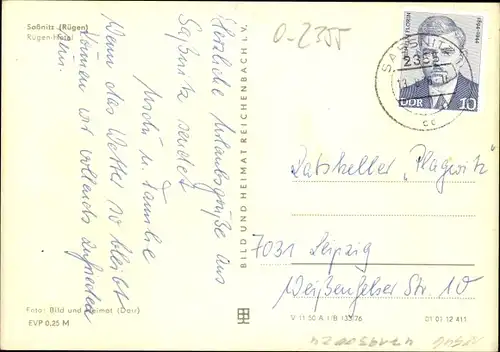 Saßnitz (Rügen)
Rügen-Hotel
0-2355
Herzliche Urlaubsgrüße aus
Saßnitz sendet
u. Familie
Wenn das Wetter so bleibt
können wir vollends zufrieden
sein.
BILD UND HEIMAT REICHENBACH i. V.
SASSNITZ
2355
DDR 10
Ratskeller „Plagwitz"
7031 Leipzig
Weißenfelser Str. 10
Foto: Bild und Heimat (Darr)
EVP 0,25 M
V 11 50 A 1/B 133/76
01 01 12 411